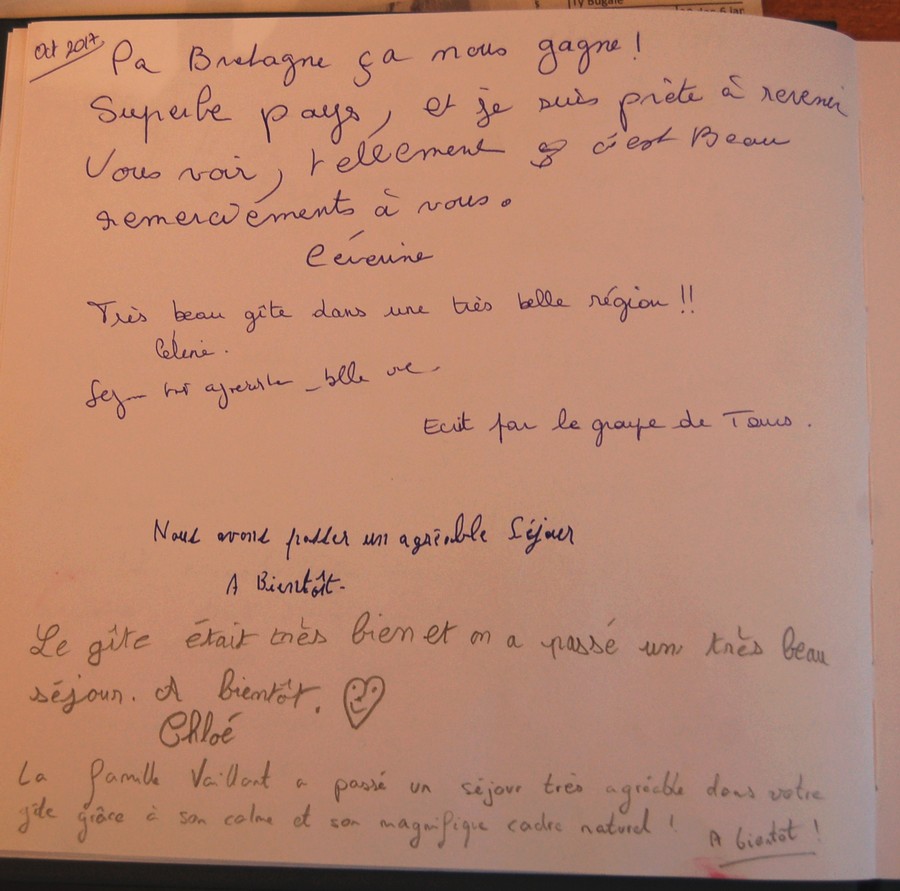 Ty Bugale
Oct 2017
Pa Bretagne ça nous gagne !
Superbe pays, et je suis prète à revenir
Vous voir, tellement c'est Beau
remerciéments à vous.
Céverine
Très beau gîte dans une très belle région !!
Céline.
très agréable belle vue.
Ecrit par le groupe de Tours.
Nous avons passer un agréable Séjour
A Bientôt.
Le gîte était très bien et on a passé un très beau
séjour. A bientôt.
Chloé
La famille Vaillant a passé un séjour très agréable dans votre
gîte grâce à son calme et son magnifique cadre naturel !
A bientôt !